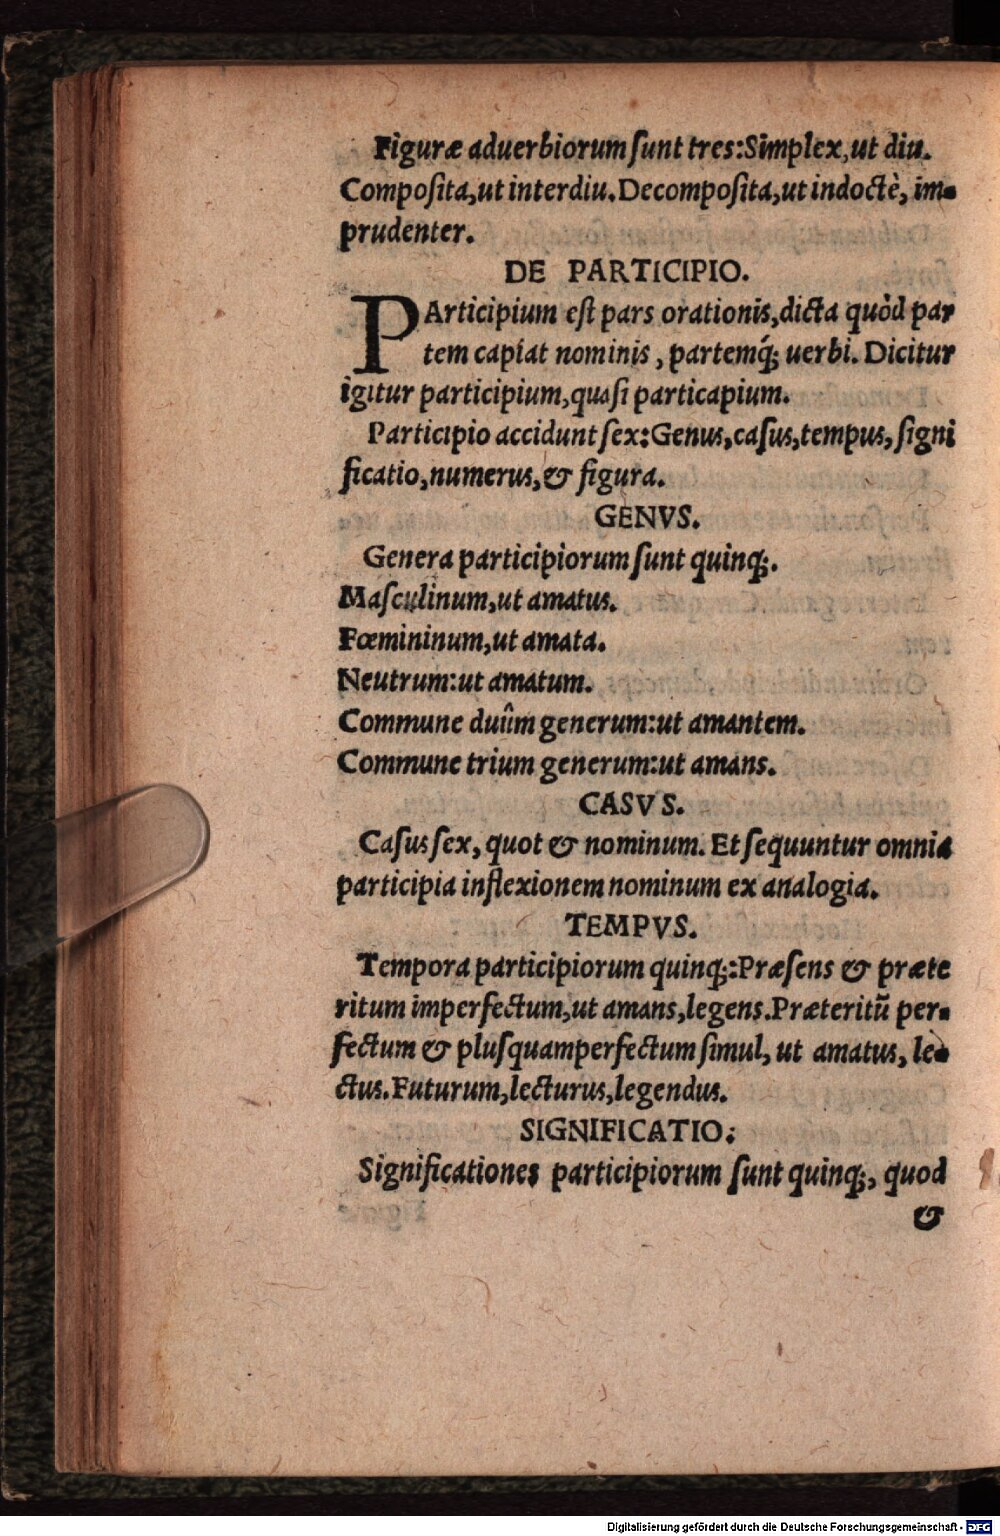 Figuræ aduerbiorum ſunt tres: Simplex, ut diu.
Compoſita, ut interdiu. Decompoſita, ut indoctè, im-
prudenter.
DE PARTICIPIO.
PArticipium eſt pars orationis, dicta quòd par
tem capiat nominis, partemq́; uerbi. Dicitur
igitur participium, quaſi particapium.
Participio accidunt ſex: Genus, caſus, tempus, ſigni
ficatio, numerus, & figura.
GENVS.
Genera participiorum ſunt quinq;.
Maſculinum, ut amatus.
Fœmininum, ut amata.
Neutrum: ut amatum.
Commune duûm generum: ut amantem.
Commune trium generum: ut amans.
CASVS.
Caſus ſex, quot & nominum. Et ſequuntur omnia
participia inflexionem nominum ex analogia.
TEMPVS.
Tempora participiorum quinq;: Præſens & præte
ritum imperfectum, ut amans, legens. Præteritũ per-
fectum & pluſquamperfectum ſimul, ut amatus, le-
ctus. Futurum, lecturus, legendus.
SIGNIFICATIO.
Significationes participiorum ſunt quinq;, quod
&
Digitalisierung gefördert durch die Deutsche Forschungsgemeinschaft - DFG